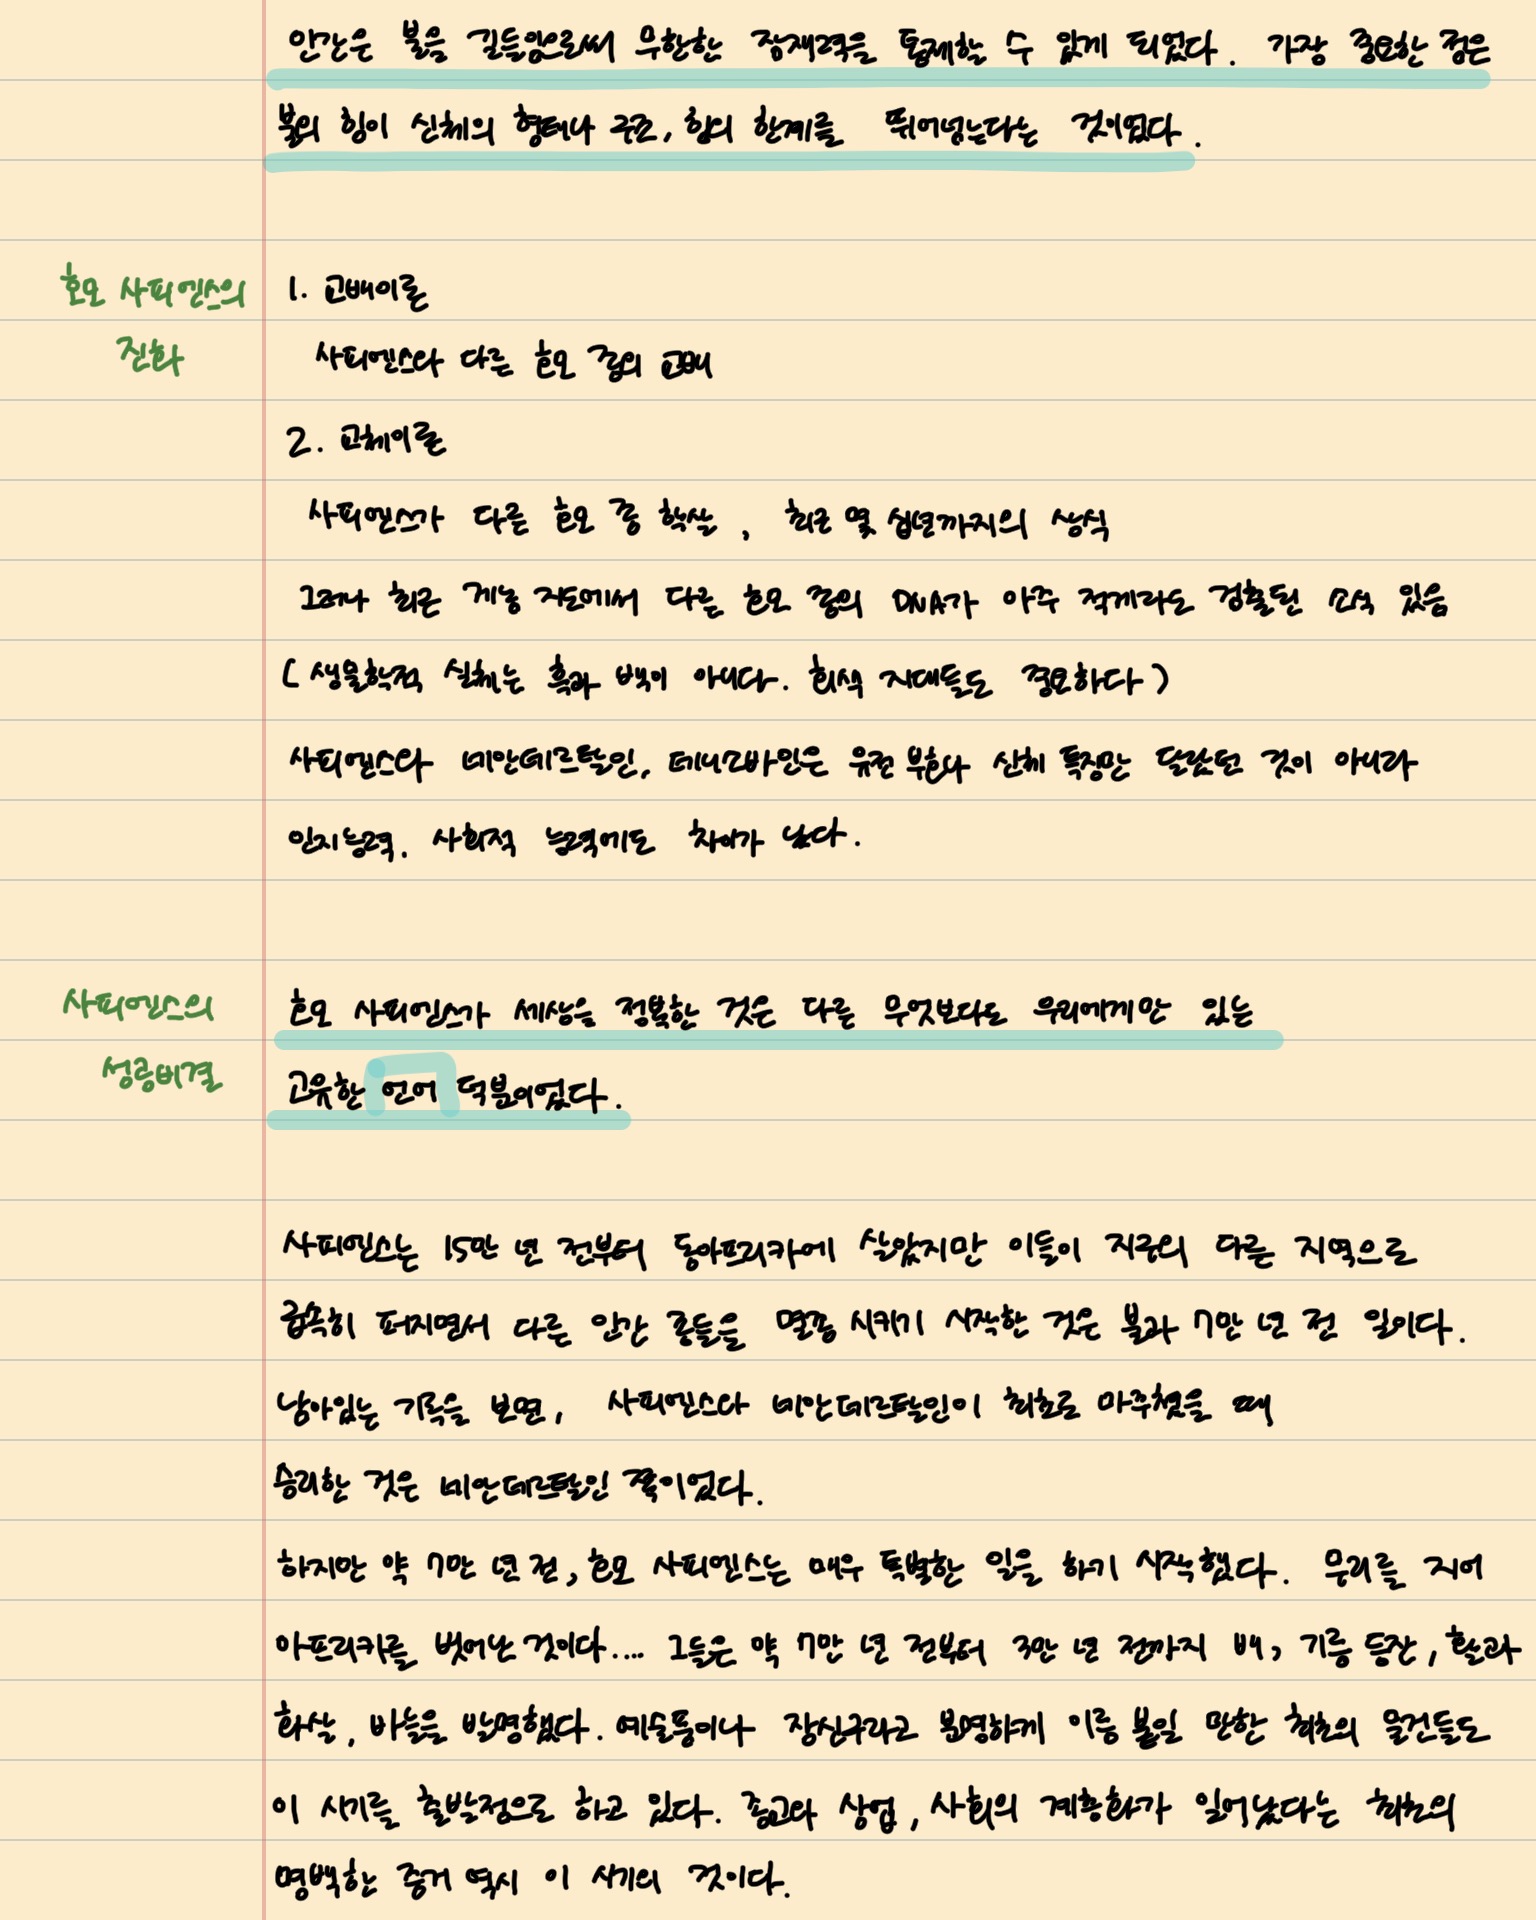 인간은 불을 길들임으로써 무한한 잠재력을 통제할 수 있게 되었다. 가장 중요한 점은
불의 힘이 신체의 형태나 구조, 힘의 한계를 뛰어넘는다는 것이었다.
호모 사피엔스의
진화
1. 교배이론
사피엔스와 다른 호모 종의 교배
2. 교체이론
사피엔스가 다른 호모 종 학살, 최근 몇 십년까지의 상식
그러나 최근 게놈 지도에서 다른 호모 종의 DNA가 아주 적게라도 검출된 소식 있음
( 생물학적 실체는 흑과 백이 아니다. 회색 지대들도 중요하다 )
사피엔스와 네안데르탈인, 데니소바인은 유전 부호나 신체 특징만 달랐던 것이 아니라
인지능력, 사회적 능력에도 차이가 났다.
사피엔스의
성공비결
호모 사피엔스가 세상을 정복한 것은 다른 무엇보다도 우리에게만 있는
고유한 언어 덕분이었다.
사피엔스는 15만 년 전부터 동아프리카에 살았지만 이들이 지구의 다른 지역으로
급속히 퍼지면서 다른 인간 종들을 멸종 시키기 시작한 것은 불과 7만 년 전 일이다.
남아있는 기록을 보면, 사피엔스와 네안데르탈인이 최초로 마주쳤을 때
승리한 것은 네안데르탈인 쪽이었다.
하지만 약 7만 년 전, 호모 사피엔스는 매우 특별한 일을 하기 시작했다. 무리를 지어
아프리카를 벗어난 것이다.... 그들은 약 7만 년 전부터 3만 년 전까지 배, 기름 등잔, 활과
화살, 바늘을 발명했다. 예술품이나 장신구라고 분명하게 이름 붙일 만한 최초의 물건들도
이 시기를 출발점으로 하고 있다. 종교와 상업, 사회의 계층화가 일어났다는 최초의
명백한 증거 역시 이 시기의 것이다.